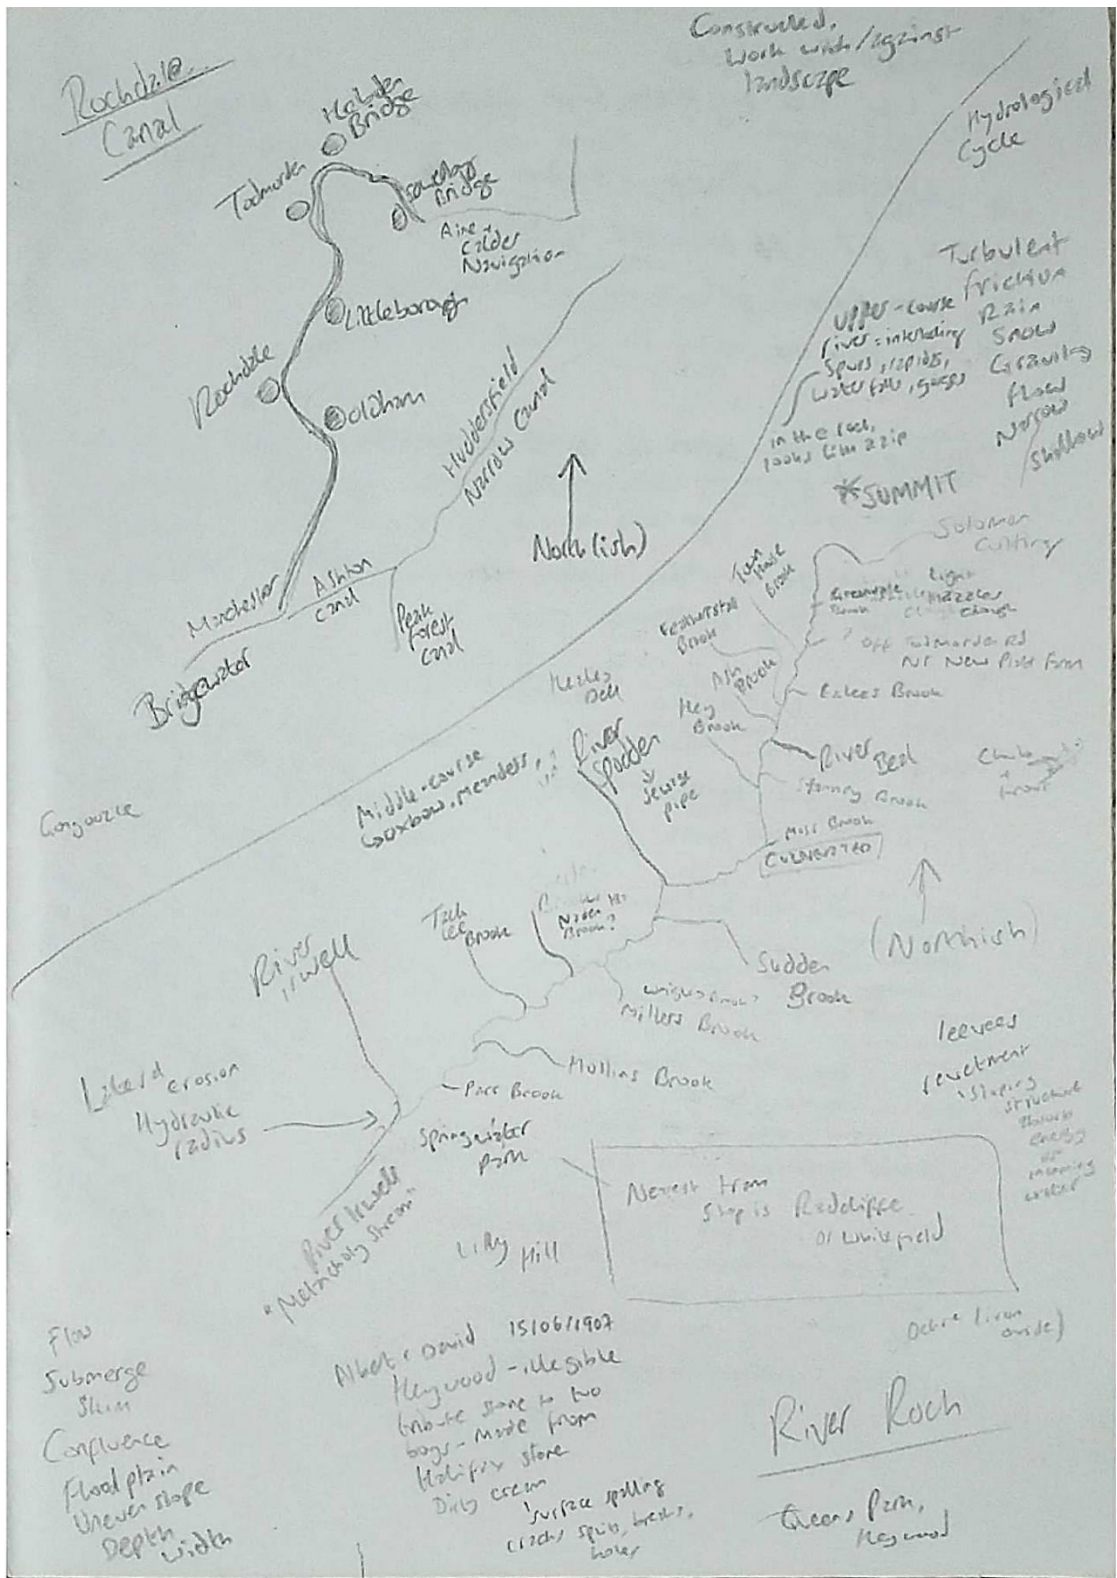 Rochdale
Canal
Constructed,
work with/against
landscape
Hebden
Bridge
Todmorden
Sowerby
Bridge
Aire +
Calder
Navigation
Littleborough
Rochdale
Oldham
Huddersfield
Narrow Canal
North (ish)
Manchester
Ashton
Canal
Peak
Forest
Canal
Bridgewater
Hydrological
Cycle
Turbulent
friction
Rain
Snow
Gravity
flow
Narrow
Shallow
Upper-course
river = interlocking
Spurs, rapids,
waterfalls, gorges
in the rock,
looks like a zip
*SUMMIT
Cutting
Light
Hazzles
Clough
Town
House
Brook
Featherstall
Brook
Ash
Brook
Hey
Brook
? Off Todmorden Rd
Nr New Farm
Ealees Brook
River Beal
Stanney Brook
Moss Brook
CULVERTED
Healey
Dell
River
Spodden
sewage
pipe
Middle-course
oxbow, meanders,
(Northish)
River
Irwell
Brook
Naden
Brook?
Sudden
Brook
Millers Brook
Hollins Brook
Parr Brook
Lateral erosion
Hydraulic
radius
Springwater
Park
River Irwell
"Melancholy Stream"
Nearest tram
Stop is Radcliffe
or Whitefield
leevees
revetment
sloping
structure
energy
of
incoming
water
Hill
Flow
Submerge
Skim
Confluence
Flood plain
Uneven slope
Depth
width
Albert + David 15/06/1907
Heywood - illegible
tribute stone to two
boys - made from
Halifax stone
Dirty cream
surface spalling
cracks splits, breaks,
holes
Ochre (iron
oxide)
River Roch
Queens Park,
Heywood